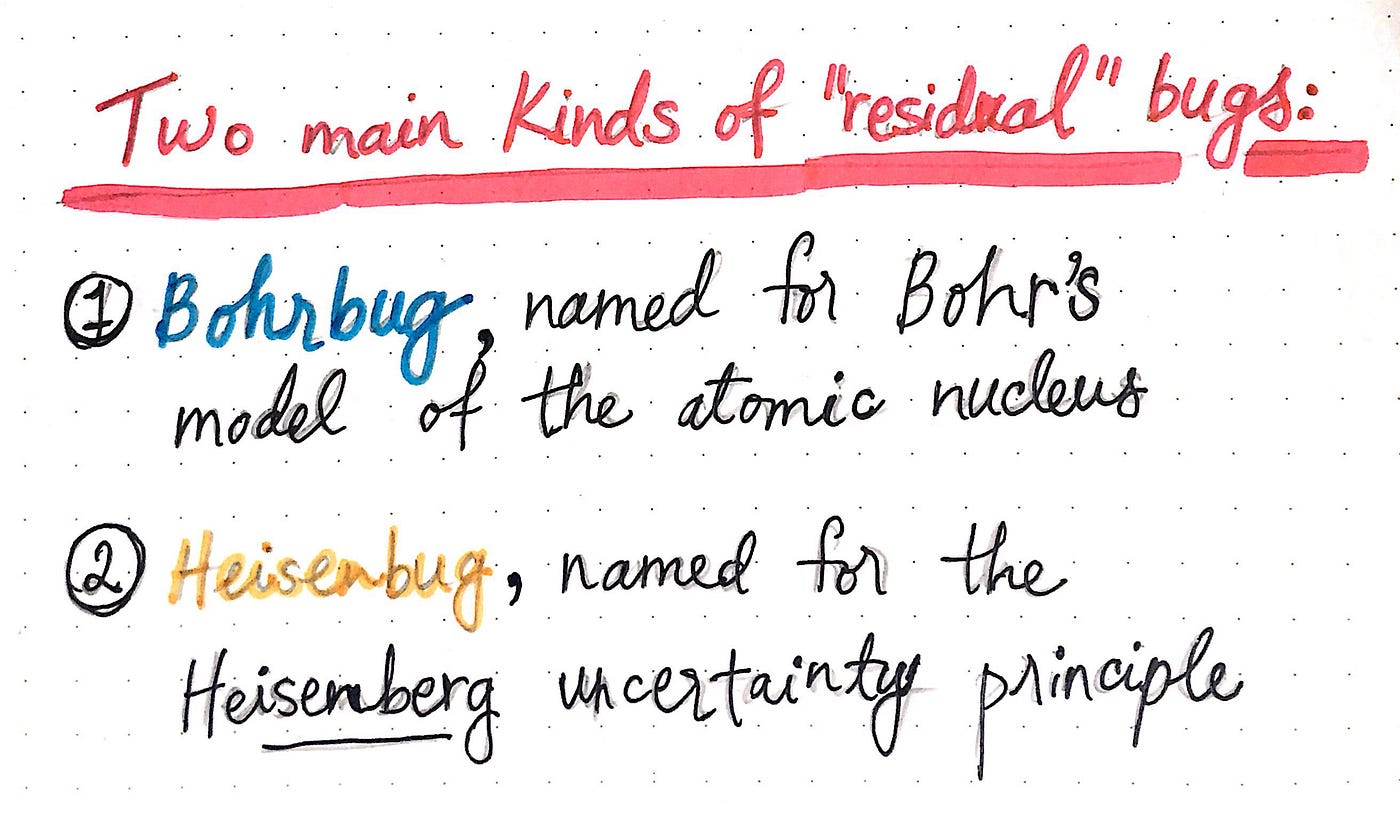 Two main Kinds of "residual" bugs:
1 Bohrbug, named for Bohr's
model of the atomic nucleus
2 Heisenbug, named for the
Heisenberg uncertainty principle